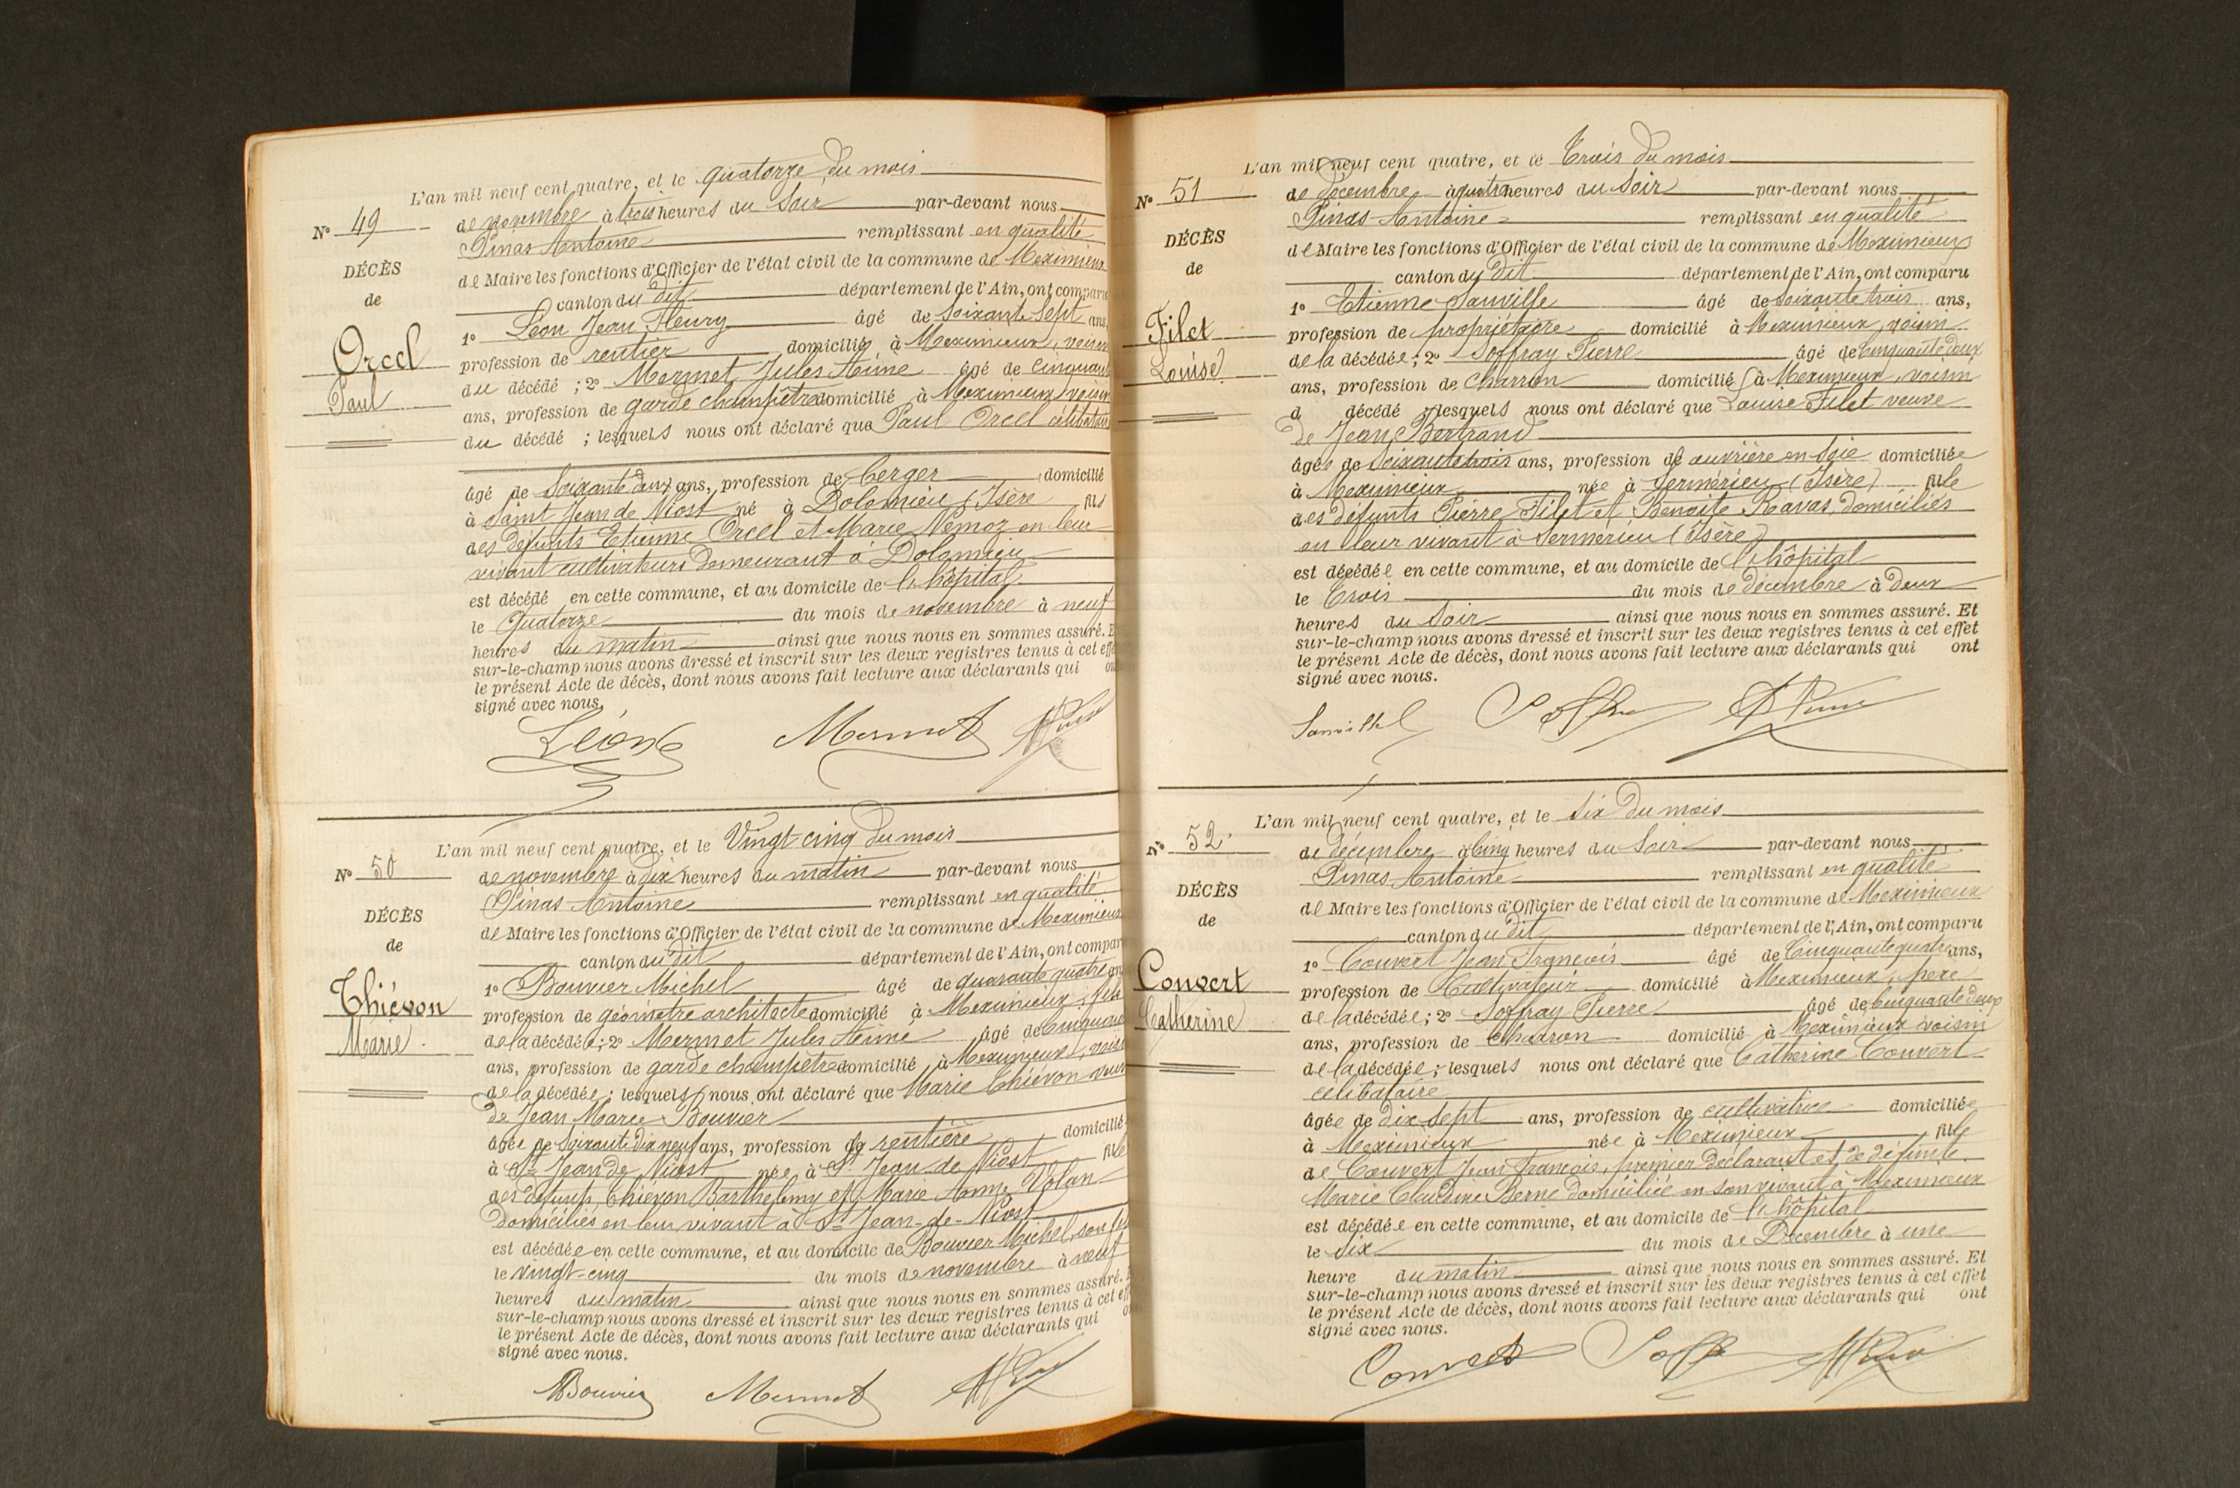 L'an mil neuf cent quatre, et le quatorze du mois
N° 49
de novembre à trois heures du Soir par-devant nous
Pinas Antoine remplissant en qualité
DÉCÈS
de Maire les fonctions d'Officier de l'état civil de la commune de Meximieux
de
canton du dit département de l'Ain, ont comparu
1° Léon Jean Fleury âgé de Soixante Sept ans,
Orcel
profession de rentier domicilié à Meximieux, voisin
Paul
du décédé ; 2° Mermet Jules Aimé âgé de cinquante
ans, profession de garde champêtre domicilié à Meximieux, voisin
du décédé ; lesquels nous ont déclaré que Paul Orcel célibataire
âgé de Soixante ans, profession de berger domicilié
à Saint Jean de Niost né à Dolomieu (Isère fils
des défunts Etienne Orcel et Marie Némoz en leur
vivant cultivateurs demeurant à Dolomieu
est décédé en cette commune, et au domicile de l'hôpital
le Quatorze du mois de novembre à neuf
heures du matin ainsi que nous nous en sommes assuré. E
sur-le-champ nous avons dressé et inscrit sur les deux registres tenus à cet effe
le présent Acte de décès, dont nous avons fait lecture aux déclarants qui on
signé avec nous.
Léon Mermet
L'an mil neuf cent quatre, et le Vingt-cinq du mois
N° 50
de novembre à Dix heures du matin par-devant nous
Pinas Antoine remplissant en qualité
DÉCÈS
de Maire les fonctions d'Officier de l'état civil de la commune de Meximieux
de
canton du dit département de l'Ain, ont comparu
1° Bouvier Michel âgé de quarante quatre ans
Thiévon
profession de géomètre architecte domicilié à Meximieux, fils
Marie.
de la décédée ; 2° Mermet Jules Aimé âgé de Cinquante
ans, profession de garde champêtre domicilié à Meximieux, voisin
de la décédée ; lesquels nous ont déclaré que Marie Thiévon veuve
de Jean Marie Bouvier
âgée de Soixante dix neuf ans, profession de rentière domicilié
à St Jean de Niost née à St Jean de Niost fille
des défunts Thiévon Barthélemy et Marie Anne Volan
domiciliés en leur vivant à St Jean-de-Niost
est décédée en cette commune, et au domicile de Bouvier Michel, son fils
le vingt-cinq du mois de novembre à neuf
heures du matin ainsi que nous nous en sommes assuré. E
sur-le-champ nous avons dressé et inscrit sur les deux registres tenus à cet eff
le présent Acte de décès, dont nous avons fait lecture aux déclarants qui on
signé avec nous.
MBouvier Mermet
L'an mil neuf cent quatre, et le Trois du mois
N° 51
de Décembre à quatre heures du Soir par-devant nous
Pinas Antoine remplissant en qualité
DÉCÈS
de Maire les fonctions d'Officier de l'état civil de la commune de Meximieux
de
canton du dit département de l'Ain, ont comparu
1° Etienne Janville âgé de Soixante trois ans,
Filet
profession de propriétaire domicilié à Meximieux, voisin
Louise
de la décédée ; 2° Soffray Pierre âgé de Cinquante deux
ans, profession de Charron domicilié à Meximieux, voisin
d décédé ; lesquels nous ont déclaré que Louise Filet veuve
de Jean Bertrand
âgée de Soixante trois ans, profession de ouvrière en soie domiciliée
à Meximieux née à Sermérieu (Isère) fille
des défunts Pierre Filet et Benoite Ravas, domiciliés
en leur vivant à Sermérieu (Isère)
est décédée en cette commune, et au domicile de l'hôpital
le Trois du mois de décembre à Deux
heures du Soir ainsi que nous nous en sommes assuré. Et
sur-le-champ nous avons dressé et inscrit sur les deux registres tenus à cet effet
le présent Acte de décès, dont nous avons fait lecture aux déclarants qui ont
signé avec nous.
L'an mil neuf cent quatre, et le Six du mois
N° 52.
de Décembre à Cinq heures du Soir par-devant nous
Pinas Antoine remplissant en qualité
DÉCÈS
de Maire les fonctions d'Officier de l'état civil de la commune de Meximieux
de
canton du dit département de l'Ain, ont comparu
1° Couvert Jean François âgé de Cinquante quatre ans,
Convert
profession de Cultivateur domicilié à Meximieux, père
Catherine
de la décédée ; 2° Soffray Pierre âgé de Cinquante deux
ans, profession de Charron domicilié à Meximieux voisin
de la décédée ; lesquels nous ont déclaré que Catherine Convert
célibataire
âgée de dix sept ans, profession de cultivatrice domiciliée
à Meximieux née à Meximieux fille
de Convert Jean François, premier déclarant et de défunte
Marie Claudine Berne domiciliée en son vivant à Meximieux
est décédée en cette commune, et au domicile de l'hôpital
le Six du mois de Décembre à une
heure du matin ainsi que nous nous en sommes assuré. Et
sur-le-champ nous avons dressé et inscrit sur les deux registres tenus à cet effet
le présent Acte de décès, dont nous avons fait lecture aux déclarants qui ont
signé avec nous.
Convert